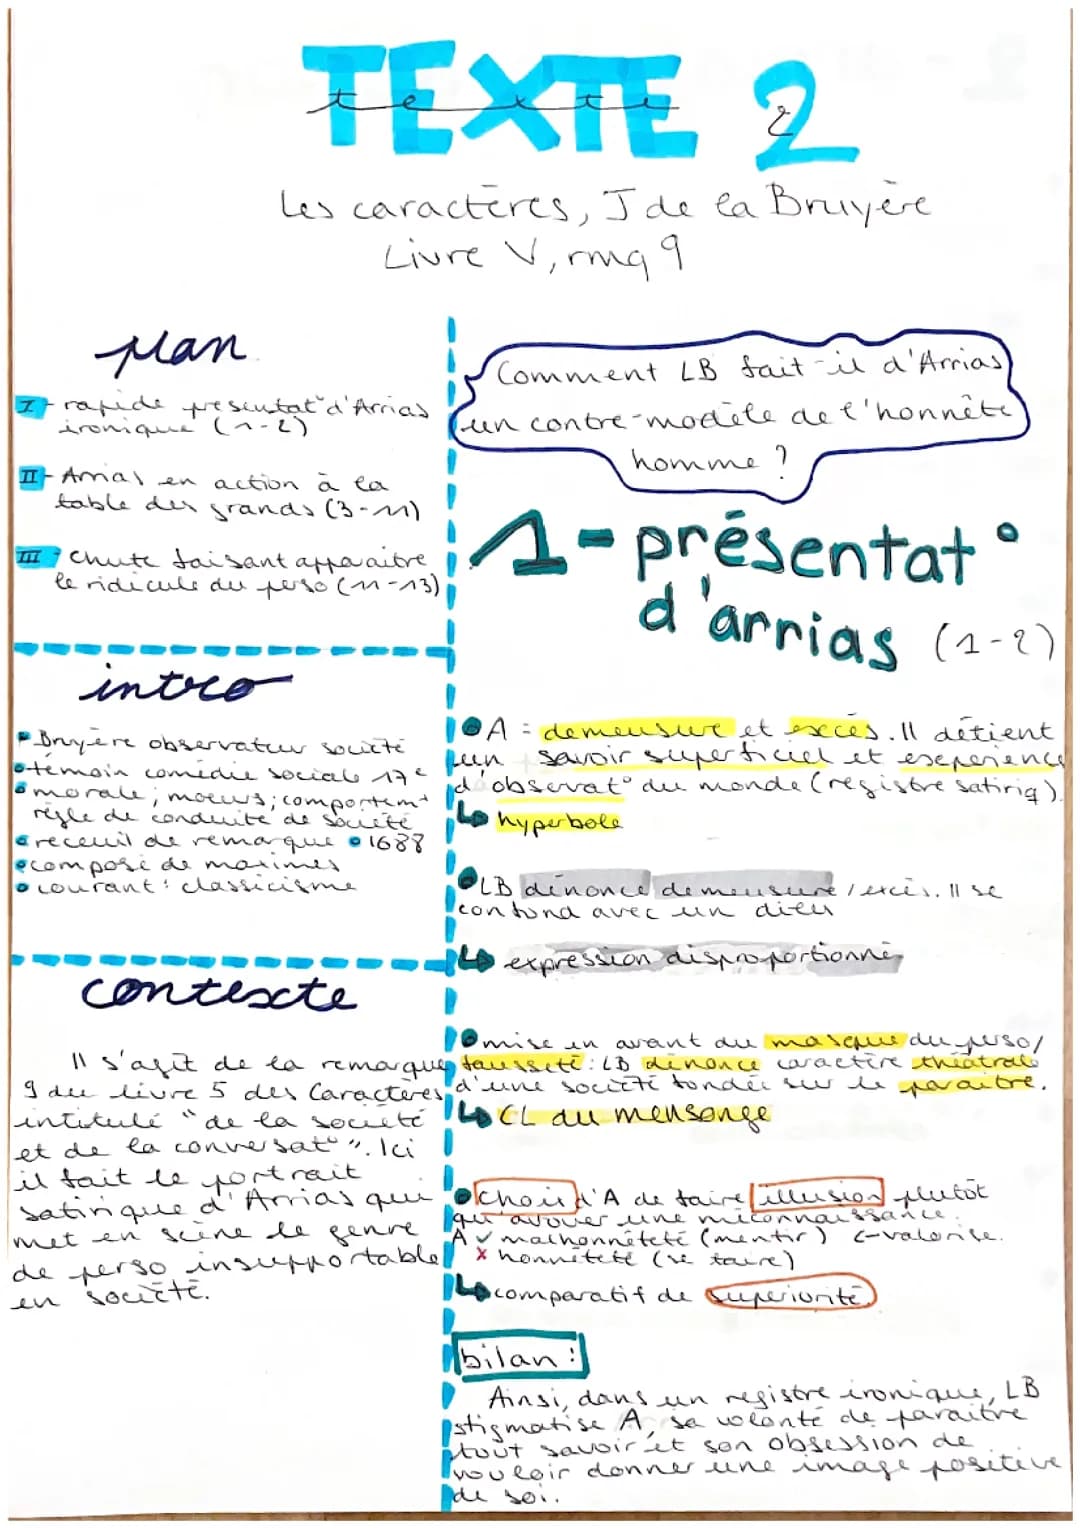 TEXTE 2
texte 2
Les caractères, J de la Bruyère
Livre V, rmq 9
plan
I - rapide présentat° d'Arrias
ironique (1-2)
II - Arrias en action à la
table des grands (3-11)
III - chute faisant apparaitre
le ridicule du perso (11-13)
intro
Bruyère observateur société
témoin comédie sociale 17e
morale; moeurs; comportemt
règle de conduite de société
receuil de remarque • 1688
composé de maximes
courant : classicisme
contexte
Il s'agit de la remarque
9 du livre 5 des Caractères
intitulé "de la société
et de la conversat°". Ici
il fait le portrait
satirique d'Arrias qui
met en scène le genre
de perso insupportable
en société.
Comment LB fait-il d'Arrias
un contre-modèle de l'honnête
homme ?
1- présentat°
d'arrias (1-2)
A = demeusure et excès. Il détient
un savoir superficiel et experience
d'observat° du monde (registre satiriq).
↳ hyperbole
LB dénonce demeusure / excès. Il se
confond avec un dieu
↳ expression disproportionné
mise en avant du masque du perso/
fausseté : LB dénonce caractère théatrale
d'une société fondée sur le paraitre.
↳ CL du mensonge
choix d'A de faire illusion plutôt
qu'avouer une méconnaissance.
A ✓ malhonnêteté (mentir) ←valorise.
x honnêteté (se taire)
↳ comparatif de superiorité
bilan :
Ainsi, dans un registre ironique, LB
stigmatise A, sa volonté de paraitre
tout savoir et son obsession de
vouloir donner une image positive
de soi.